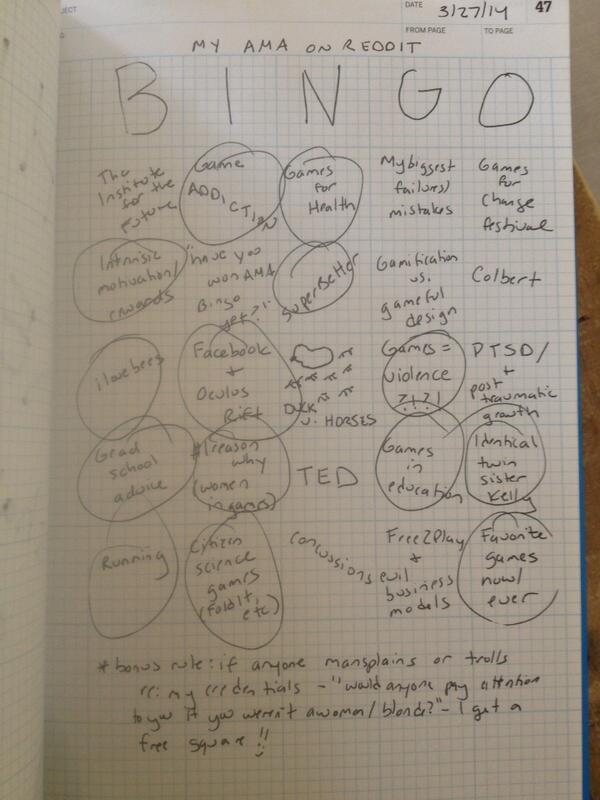 JECT
DATE 3/27/14 47
FROM PAGE TO PAGE
MY AMA ON REDDIT
B I N G O
The
Institute
for the
Future
Game
ADDICTION
Games
for
Health
My biggest
failures/
mistakes
Games
for
Change
festival
Intrinsic
motivation/
rewards
"have you
won AMA
Bingo
yet?!"
SuperBetter
Gamification
vs.
gameful
design
Colbert
ilovebees
Facebook
+
Oculus
Rift
DUCK
v. HORSES
Games =
violence
?!?!
PTSD/
+
post
traumatic
growth
Grad
school
advice
#1reason
why
(women
in games)
TED
Games
in
education
Identical
twin
sister
Kelly
Running
Citizen
science
games
(foldit,
etc)
Concussions
Free2Play
+
evil
business
models
Favorite
games
now/
ever
* bonus rule: if anyone mansplains or trolls
re: my credentials - "would anyone pay attention
to you if you weren't a woman/blonde?" - I get a
free square!!